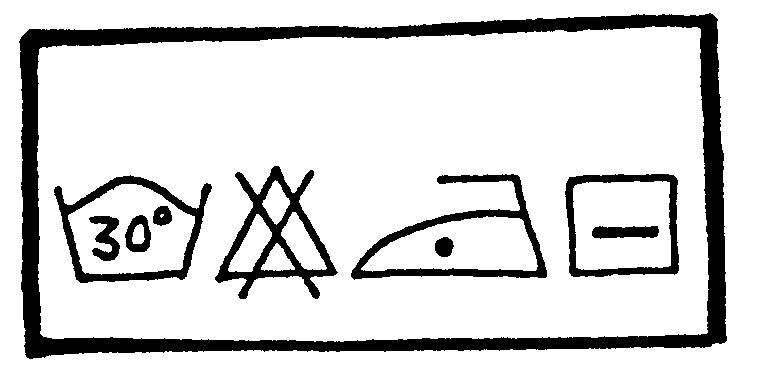 30°